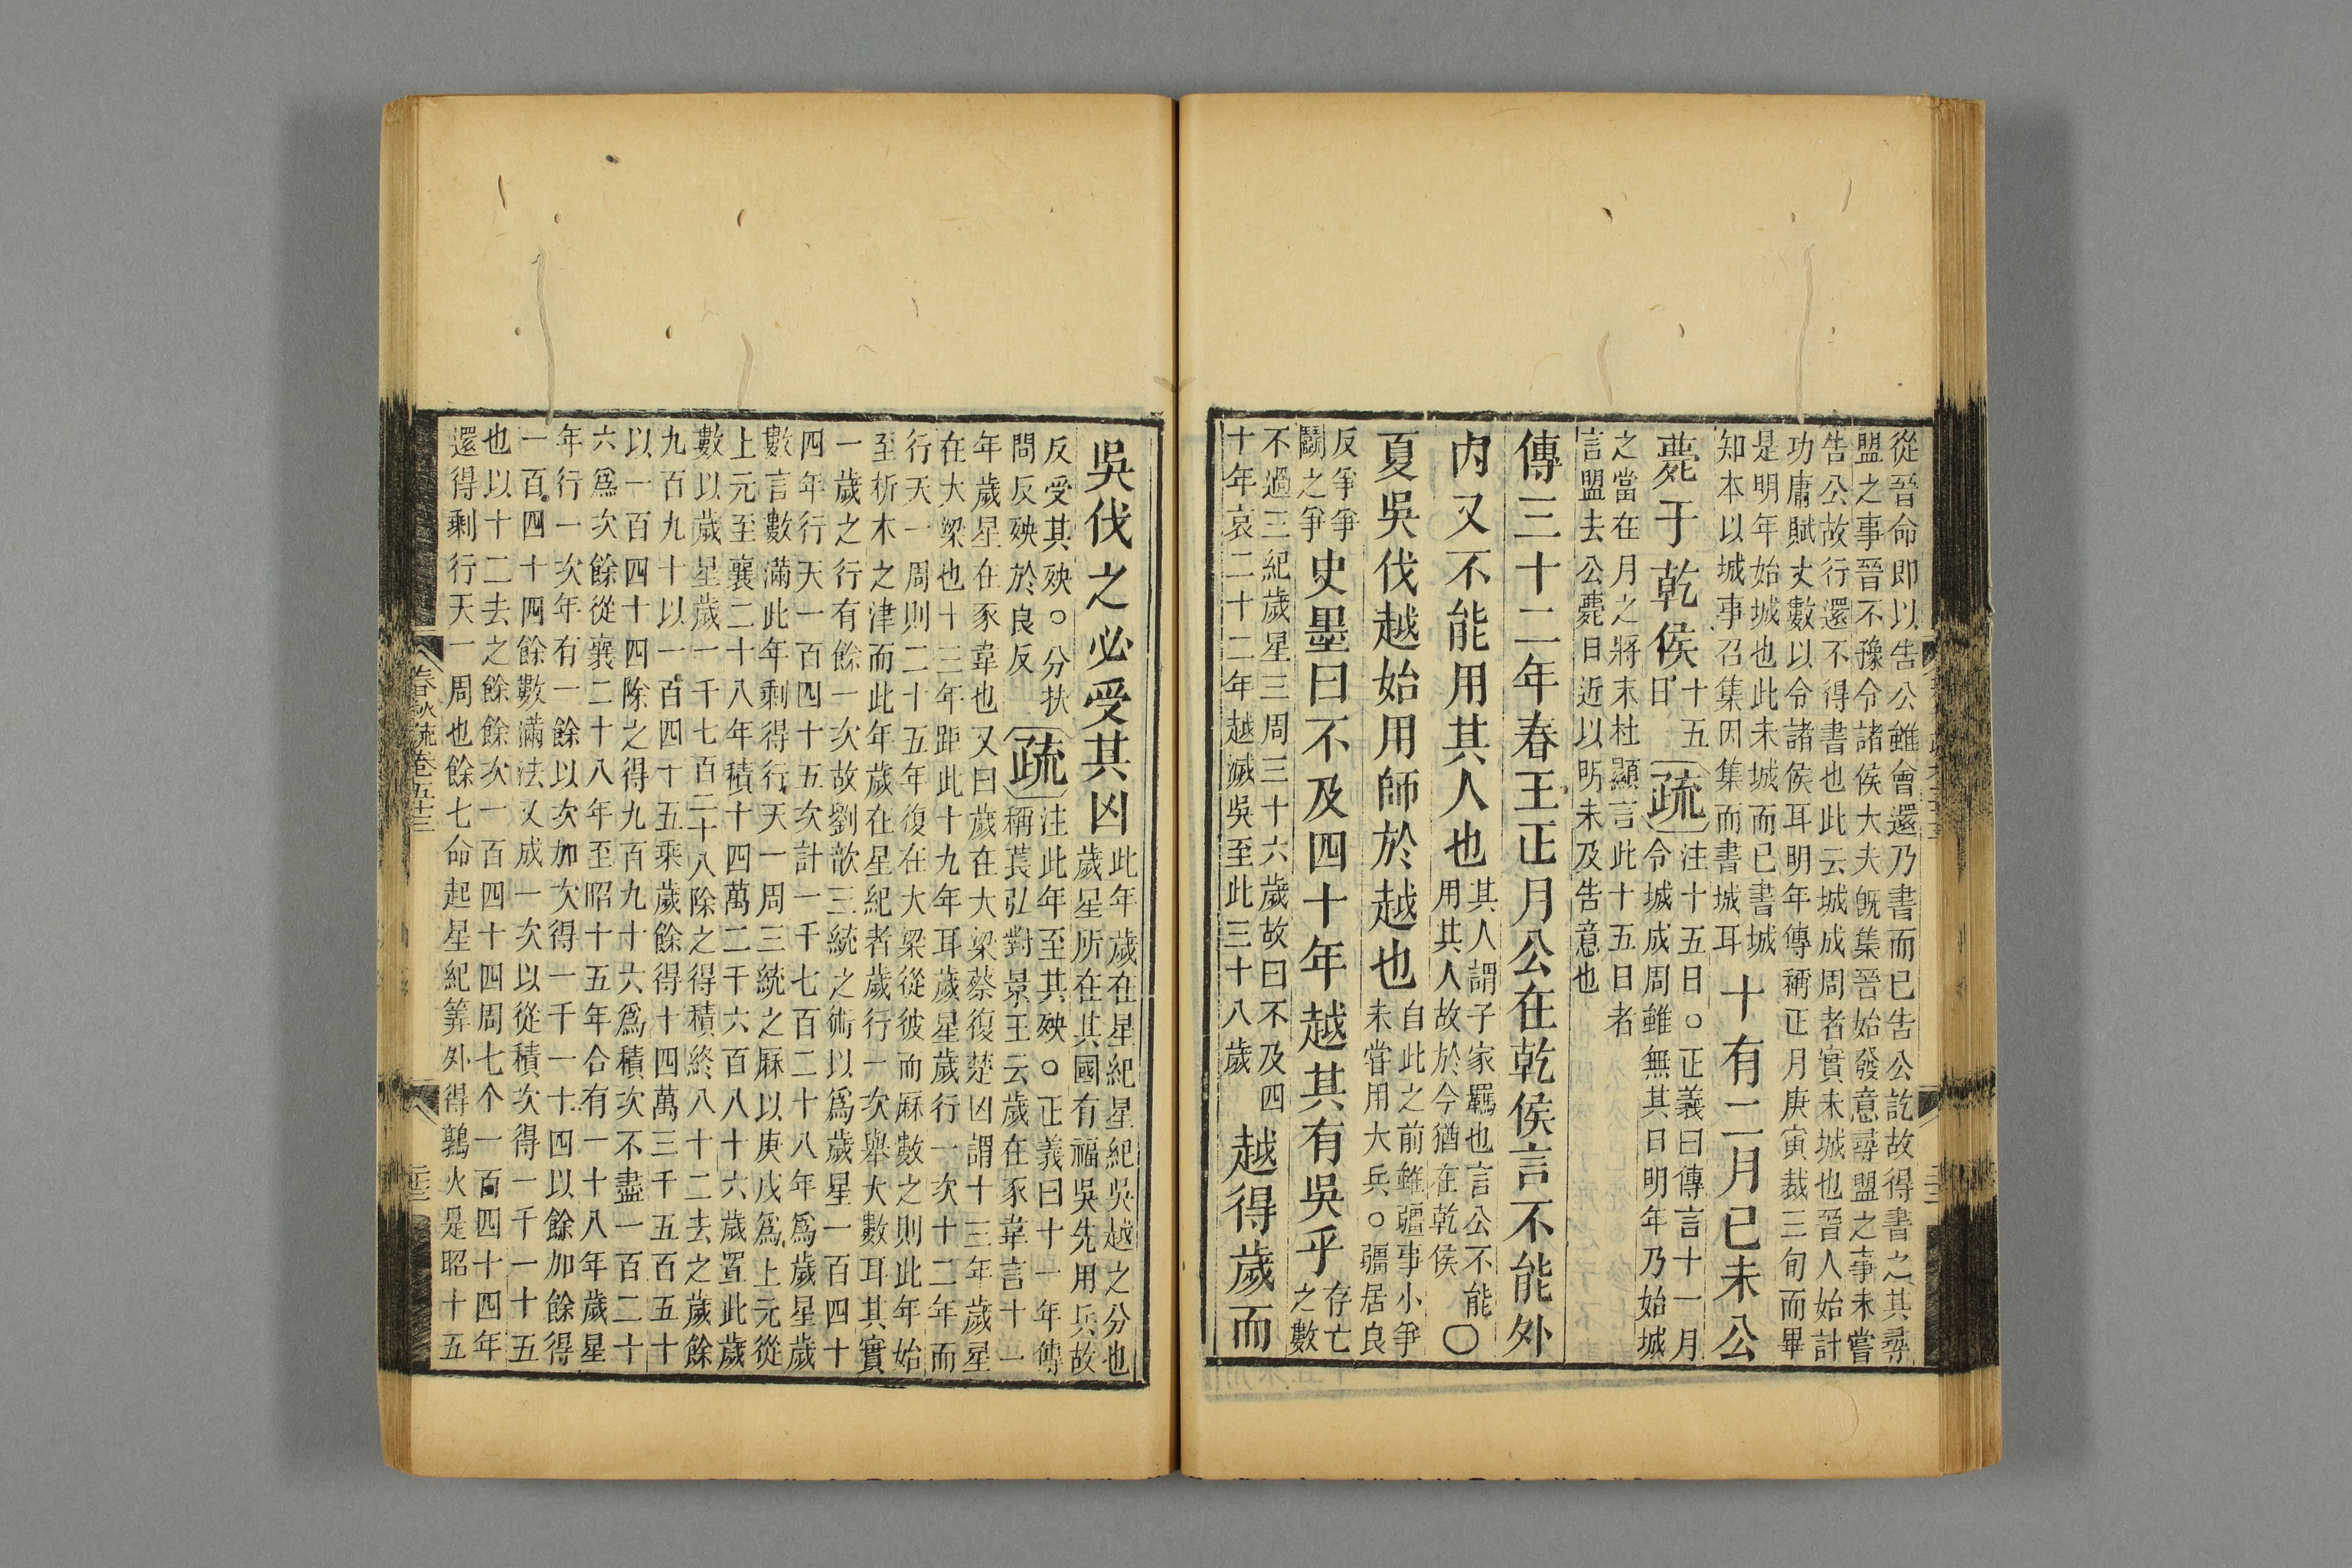 從晉命即以告公雖會還乃書而已告公訖故得書之其尋
盟之事晉不豫令諸侯大夫既集晉始發意尋盟之事未嘗
告公故行還不得書也此云城成周者實未城也晉人始計
功庸賦丈數以令諸侯耳明年傳稱正月庚寅裁三旬而畢
是明年始城也此未城而已書城
知本以城事召集因集而書城耳
十有二月已未公
薨于乾侯
十五
日
疏
注十五日○正義曰傳言十一月
令城成周雖無其日明年乃始城
之當在月之將末杜顯言此十五日者
言盟去公薨日近以明未及告意也
傳三十二年春王正月公在乾侯言不能外
内又不能用其人也
其人謂子家羈也言公不能
用其人故於今猶在乾侯
○
夏吳伐越始用師於越也
自此之前雖疆事小爭
未嘗用大兵○疆居良
反爭爭
鬬之爭
史墨曰不及四十年越其有吳乎
存亡
之數
不過三紀歲星三周三十六歲故曰不及四
十年哀二十二年越滅吳至此三十八歲
越得歲而
吳伐之必受其凶
此年歲在星紀星紀吳越之分也
歲星所在其國有福吳先用兵故
反受其殃○分扶
問反殃於良反
疏
注此年至其殃○正義曰十一年傳
稱萇弘對景王云歲在豕韋言十一
年歲星在豕韋也又曰歲在大梁蔡復楚凶謂十三年歲星
在大梁也十三年距此十九年耳歲星歲行一次十二年而
行天一周則二十五年復在大梁從彼而厤數之則此年始
至析木之津而此年歲在星紀者歲行一次舉大數耳其實
一歲之行有餘一次故劉歆三統之術以爲歲星一百四十
四年行天一百四十五次計一千七百二十八年爲歲星歲
數言數滿此年剩得行天一周三統之厤以庚戌爲上元從
上元至襄二十八年積十四萬二千六百八十六歲置此歲
數以歲星歲一千七百二十八除之得積終八十二去之歲餘
九百九十以一百四十五乘歲餘得十四萬三千五百五十
以一百四十四除之得九百九十六爲積次不盡一百二十
六爲次餘從襄二十八年至昭十五年合有一十八年歲星
年行一次年有一餘以次加次得一千一十四以餘加餘得
一百四十四餘數滿法又成一次以從積次得一千一十五
也以十二去之餘餘次一百四十四周七个一百四十四年
還得剩行天一周也餘七命起星紀筭外得鶉火是昭十五
春秋疏卷五十三